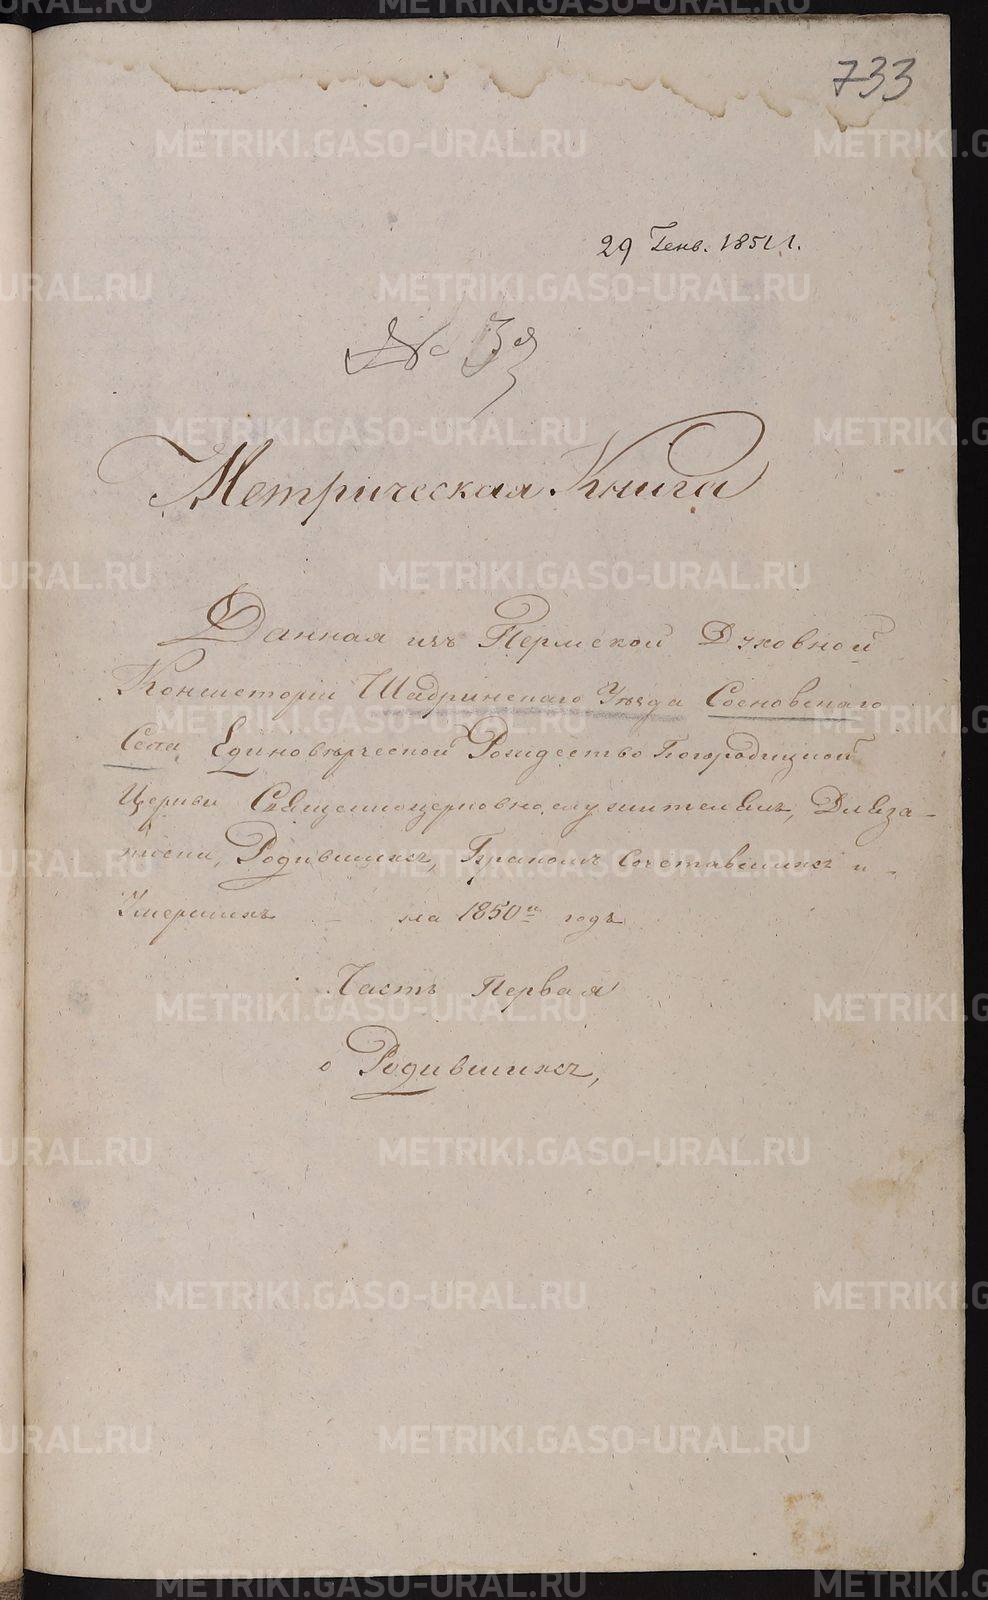 733
29 Генв. 1851 г.
№ 39
Метрическая Книга
Данная изъ Пермской Духовной
Консисторіи Шадринскаго Уѣзда Сосновскаго
Села Единовѣрческой Рождество Богородицкой
Церкви Священноцерковнослужителемъ, Для за-
писки, Родившихся, Бракомъ Сочетавшихся и
Умершихъ – на 1850й годъ
Часть Первая
о Родившихся,
METRIKI.GASO-URAL.RU